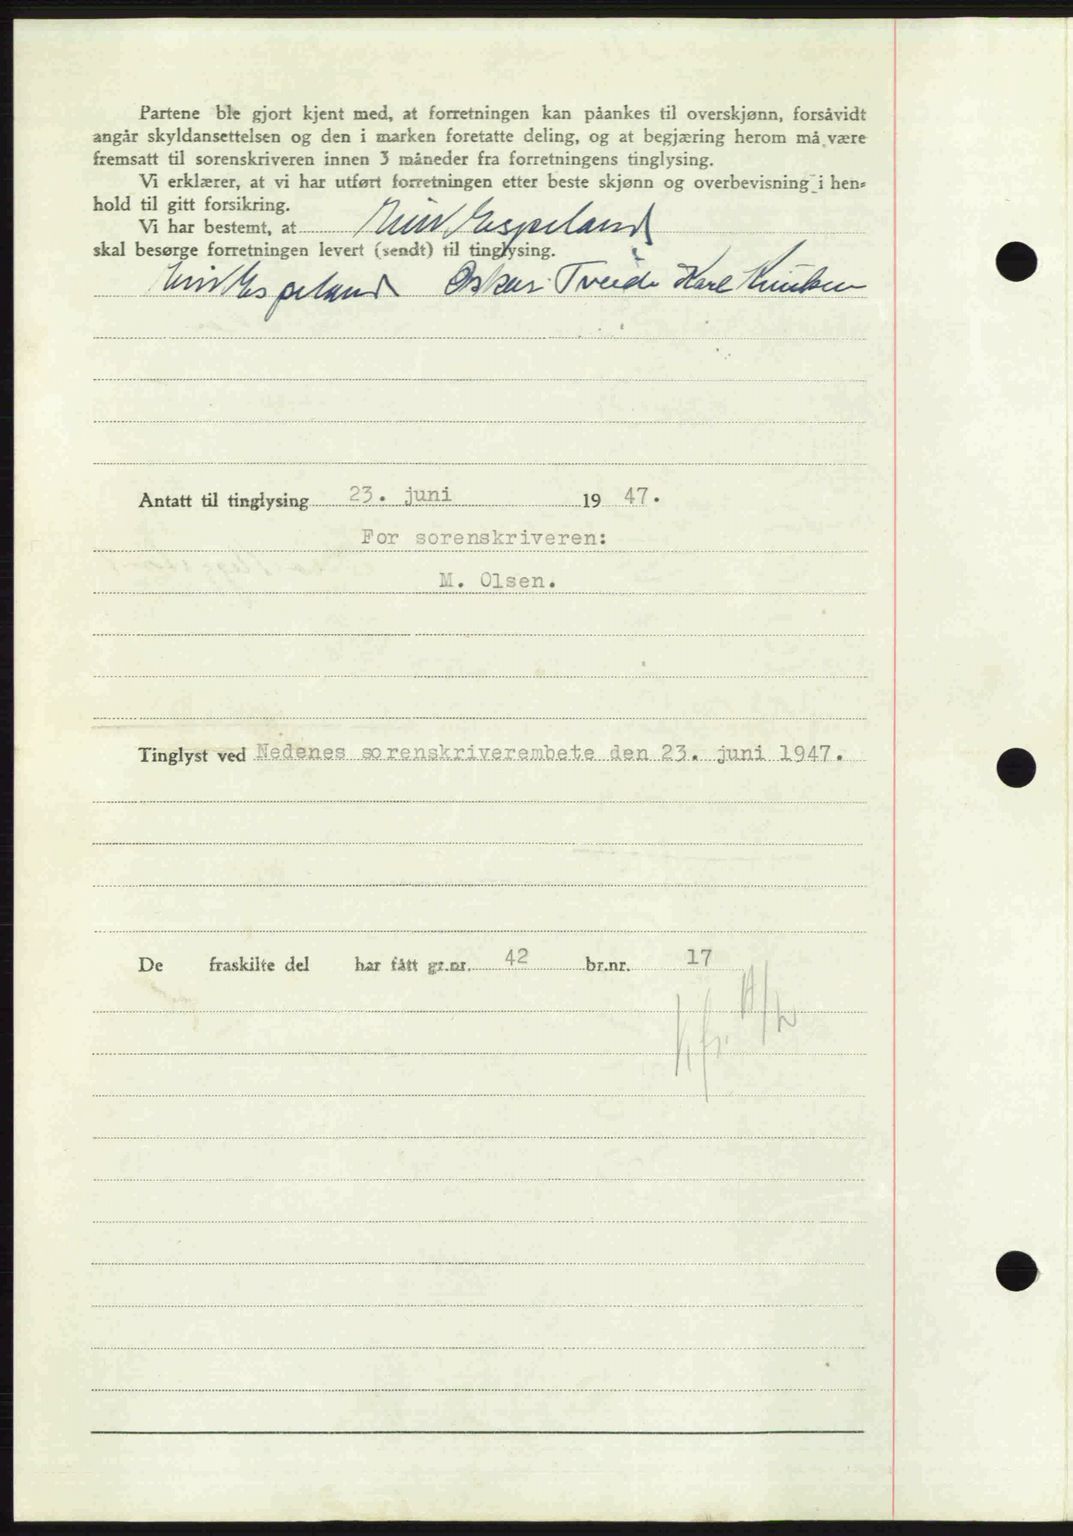 Partene ble gjort kjent med, at forretningen kan påankes til overskjønn, forsåvidt
angår skyldansettelsen og den i marken foretatte deling, og at begjæring herom må være
fremsatt til sorenskriveren innen 3 måneder fra forretningens tinglysing.
Vi erklærer, at vi har utført forretningen etter beste skjønn og overbevisning i hen=
hold til gitt forsikring.
Vi har bestemt, at Espeland
skal besørge forretningen levert (sendt) til tinglysing.
Espeland Oskar Tveide Karl Knutsen
Antatt til tinglysing 23. juni 1947.
For sorenskriveren:
M. Olsen.
Tinglyst ved Nedenes sorenskriverembete den 23. juni 1947.
De fraskilte del har fått gr.nr. 42 br.nr. 17